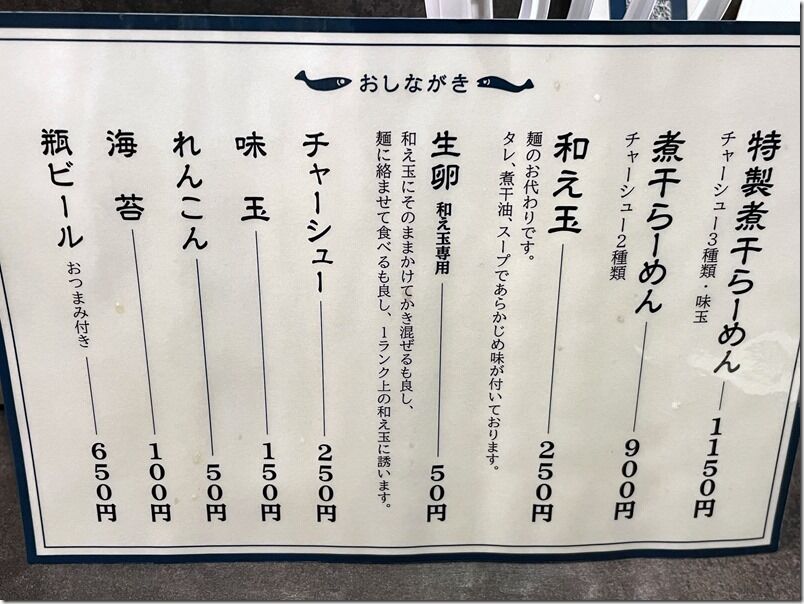 おしながき
特製煮干らーめん 1150円
チャーシュー3種類・味玉
煮干らーめん 900円
チャーシュー2種類
和え玉 250円
麺のお代わりです。
タレ、煮干油、スープであらかじめ味が付いております。
生卵 和え玉専用 50円
和え玉にそのままかけてかき混ぜるも良し、
麺に絡ませて食べるも良し、1ランク上の和え玉に誘います。
チャーシュー 250円
味玉 150円
れんこん 50円
海苔 100円
瓶ビール おつまみ付き 650円